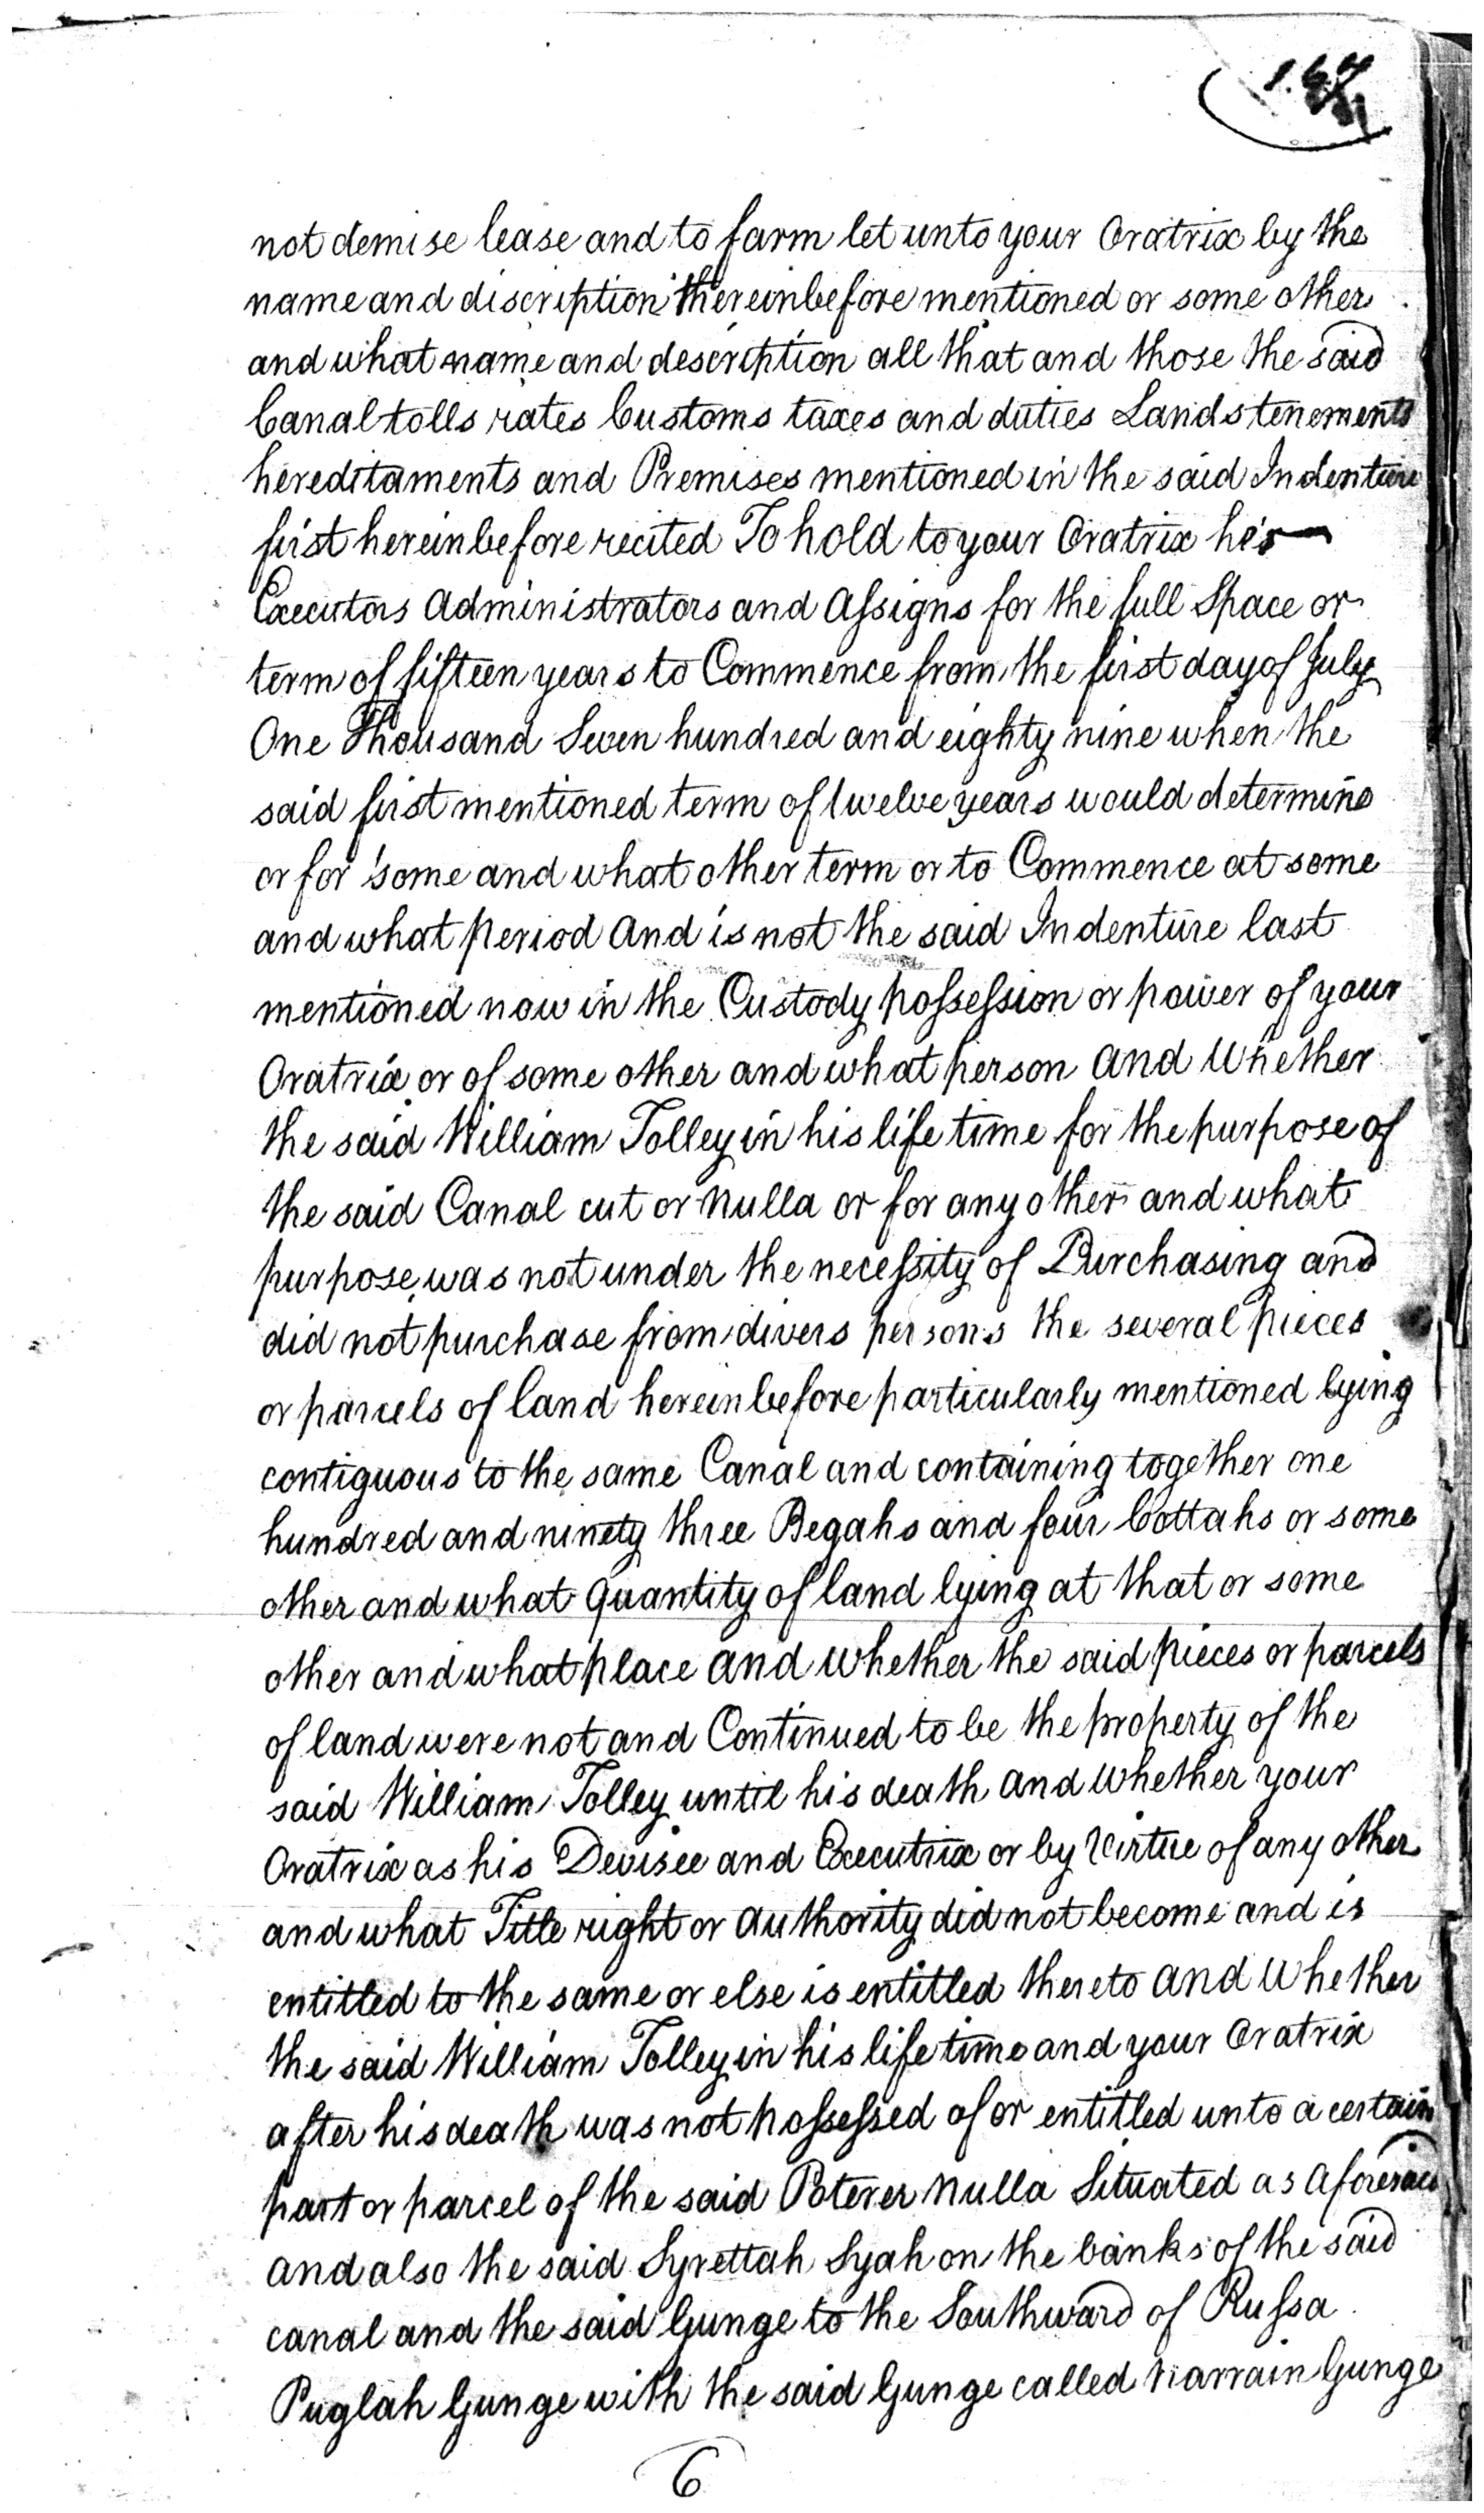 not demise lease and to farm let unto your Oratrix by the
name and discription thereinbefore mentioned or some other
and what name and description all that and those the said
Canal tolls rates Customs taxes and duties Lands tenements
hereditaments and Premises mentioned in the said Indenture
first hereinbefore recited To hold to your Oratrix his
Executors Administrators and Assigns for the full Space or
term of fifteen years to Commence from the first day of July
One Thousand Seven hundred and eighty nine when the
said first mentioned term of twelve years would determine
or for some and what other term or to Commence at some
and what period and is not the said Indenture last
mentioned now in the Custody possession or power of your
Oratrix or of some other and what person and Whether
the said William Tolley in his life time for the purpose of
the said Canal cut or Nulla or for any other and what
purpose was not under the necessity of Purchasing and
did not purchase from divers persons the several pieces
or parcels of land hereinbefore particularly mentioned lying
contiguous to the same Canal and containing together one
hundred and ninety three Begahs and four Cottahs or some
other and what quantity of land lying at that or some
other and what place and whether the said pieces or parcels
of land were not and Continued to be the property of the
said William Tolley until his death and whether your
Oratrix as his Devisee and Executrix or by Virtue of any other
and what Title right or authority did not become and is
entitled to the same or else is entitled thereto and Whether
the said William Tolley in his life time and your Oratrix
after his death was not possessed of or entitled unto a certain
part or parcel of the said Poterer Nulla Situated as aforesaid
and also the said Syrettah Syah on the banks of the said
canal and the said Gunge to the Southward of Russa
Puglah Gunge with the said Gunge called Narrain Gunge
6